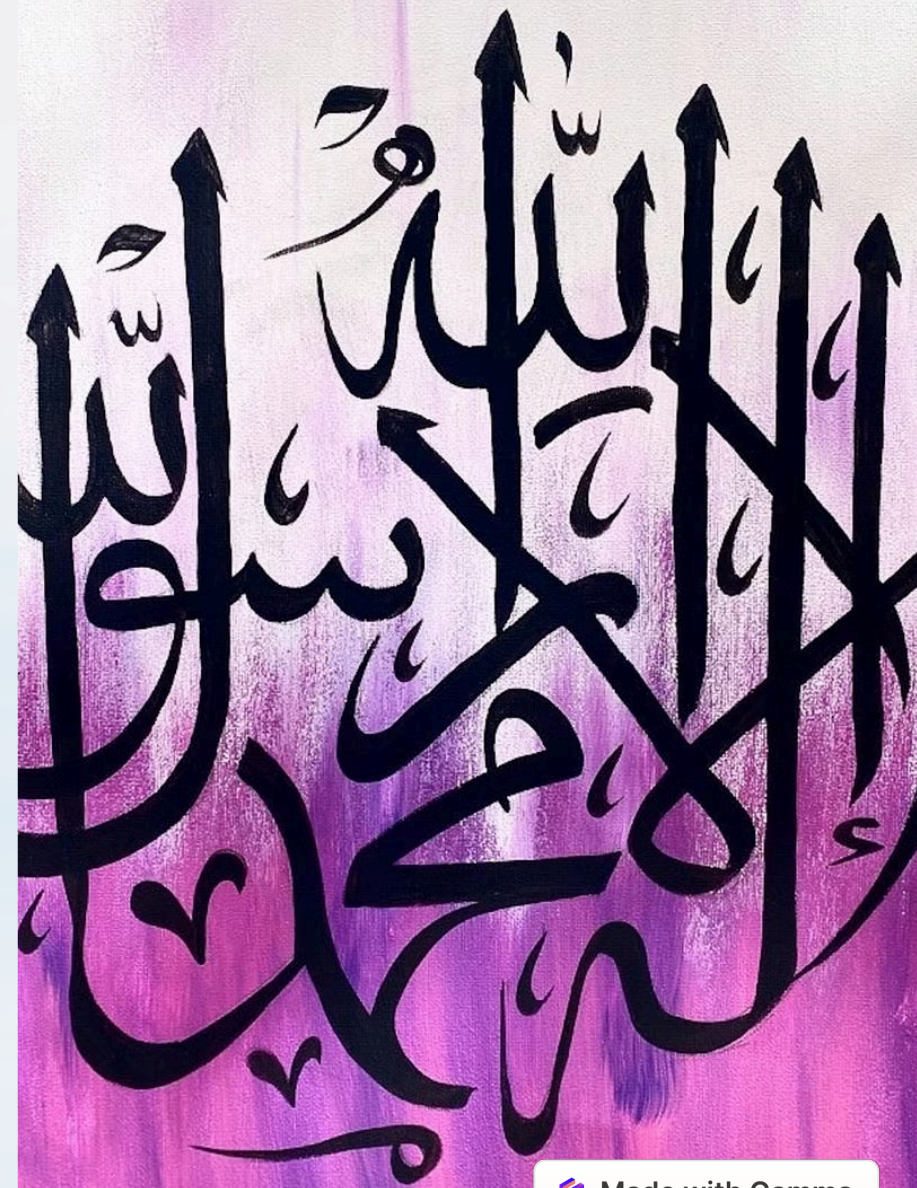 لا إله إلا الله
محمد رسول الله
Made with Gamma